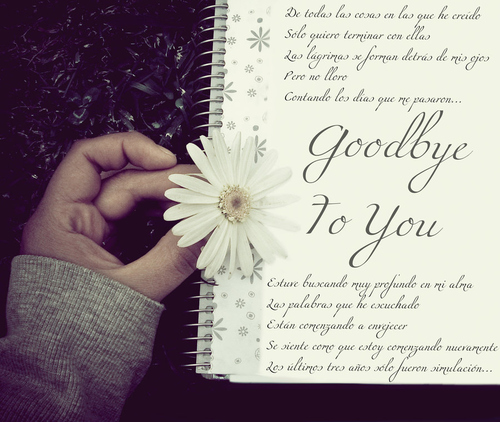 De todas las cosas en las que he creído
Sólo quiero terminar con ellas
Las lágrimas se forman detrás de mis ojos
Pero no lloro
Contando los días que me pasaron...
Goodbye
To You
Estuve buscando muy profundo en mi alma
Las palabras que he escuchado
Están comenzando a envejecer
Se siente como que estoy comenzando nuevamente
Los últimos tres años sólo fueron simulación...